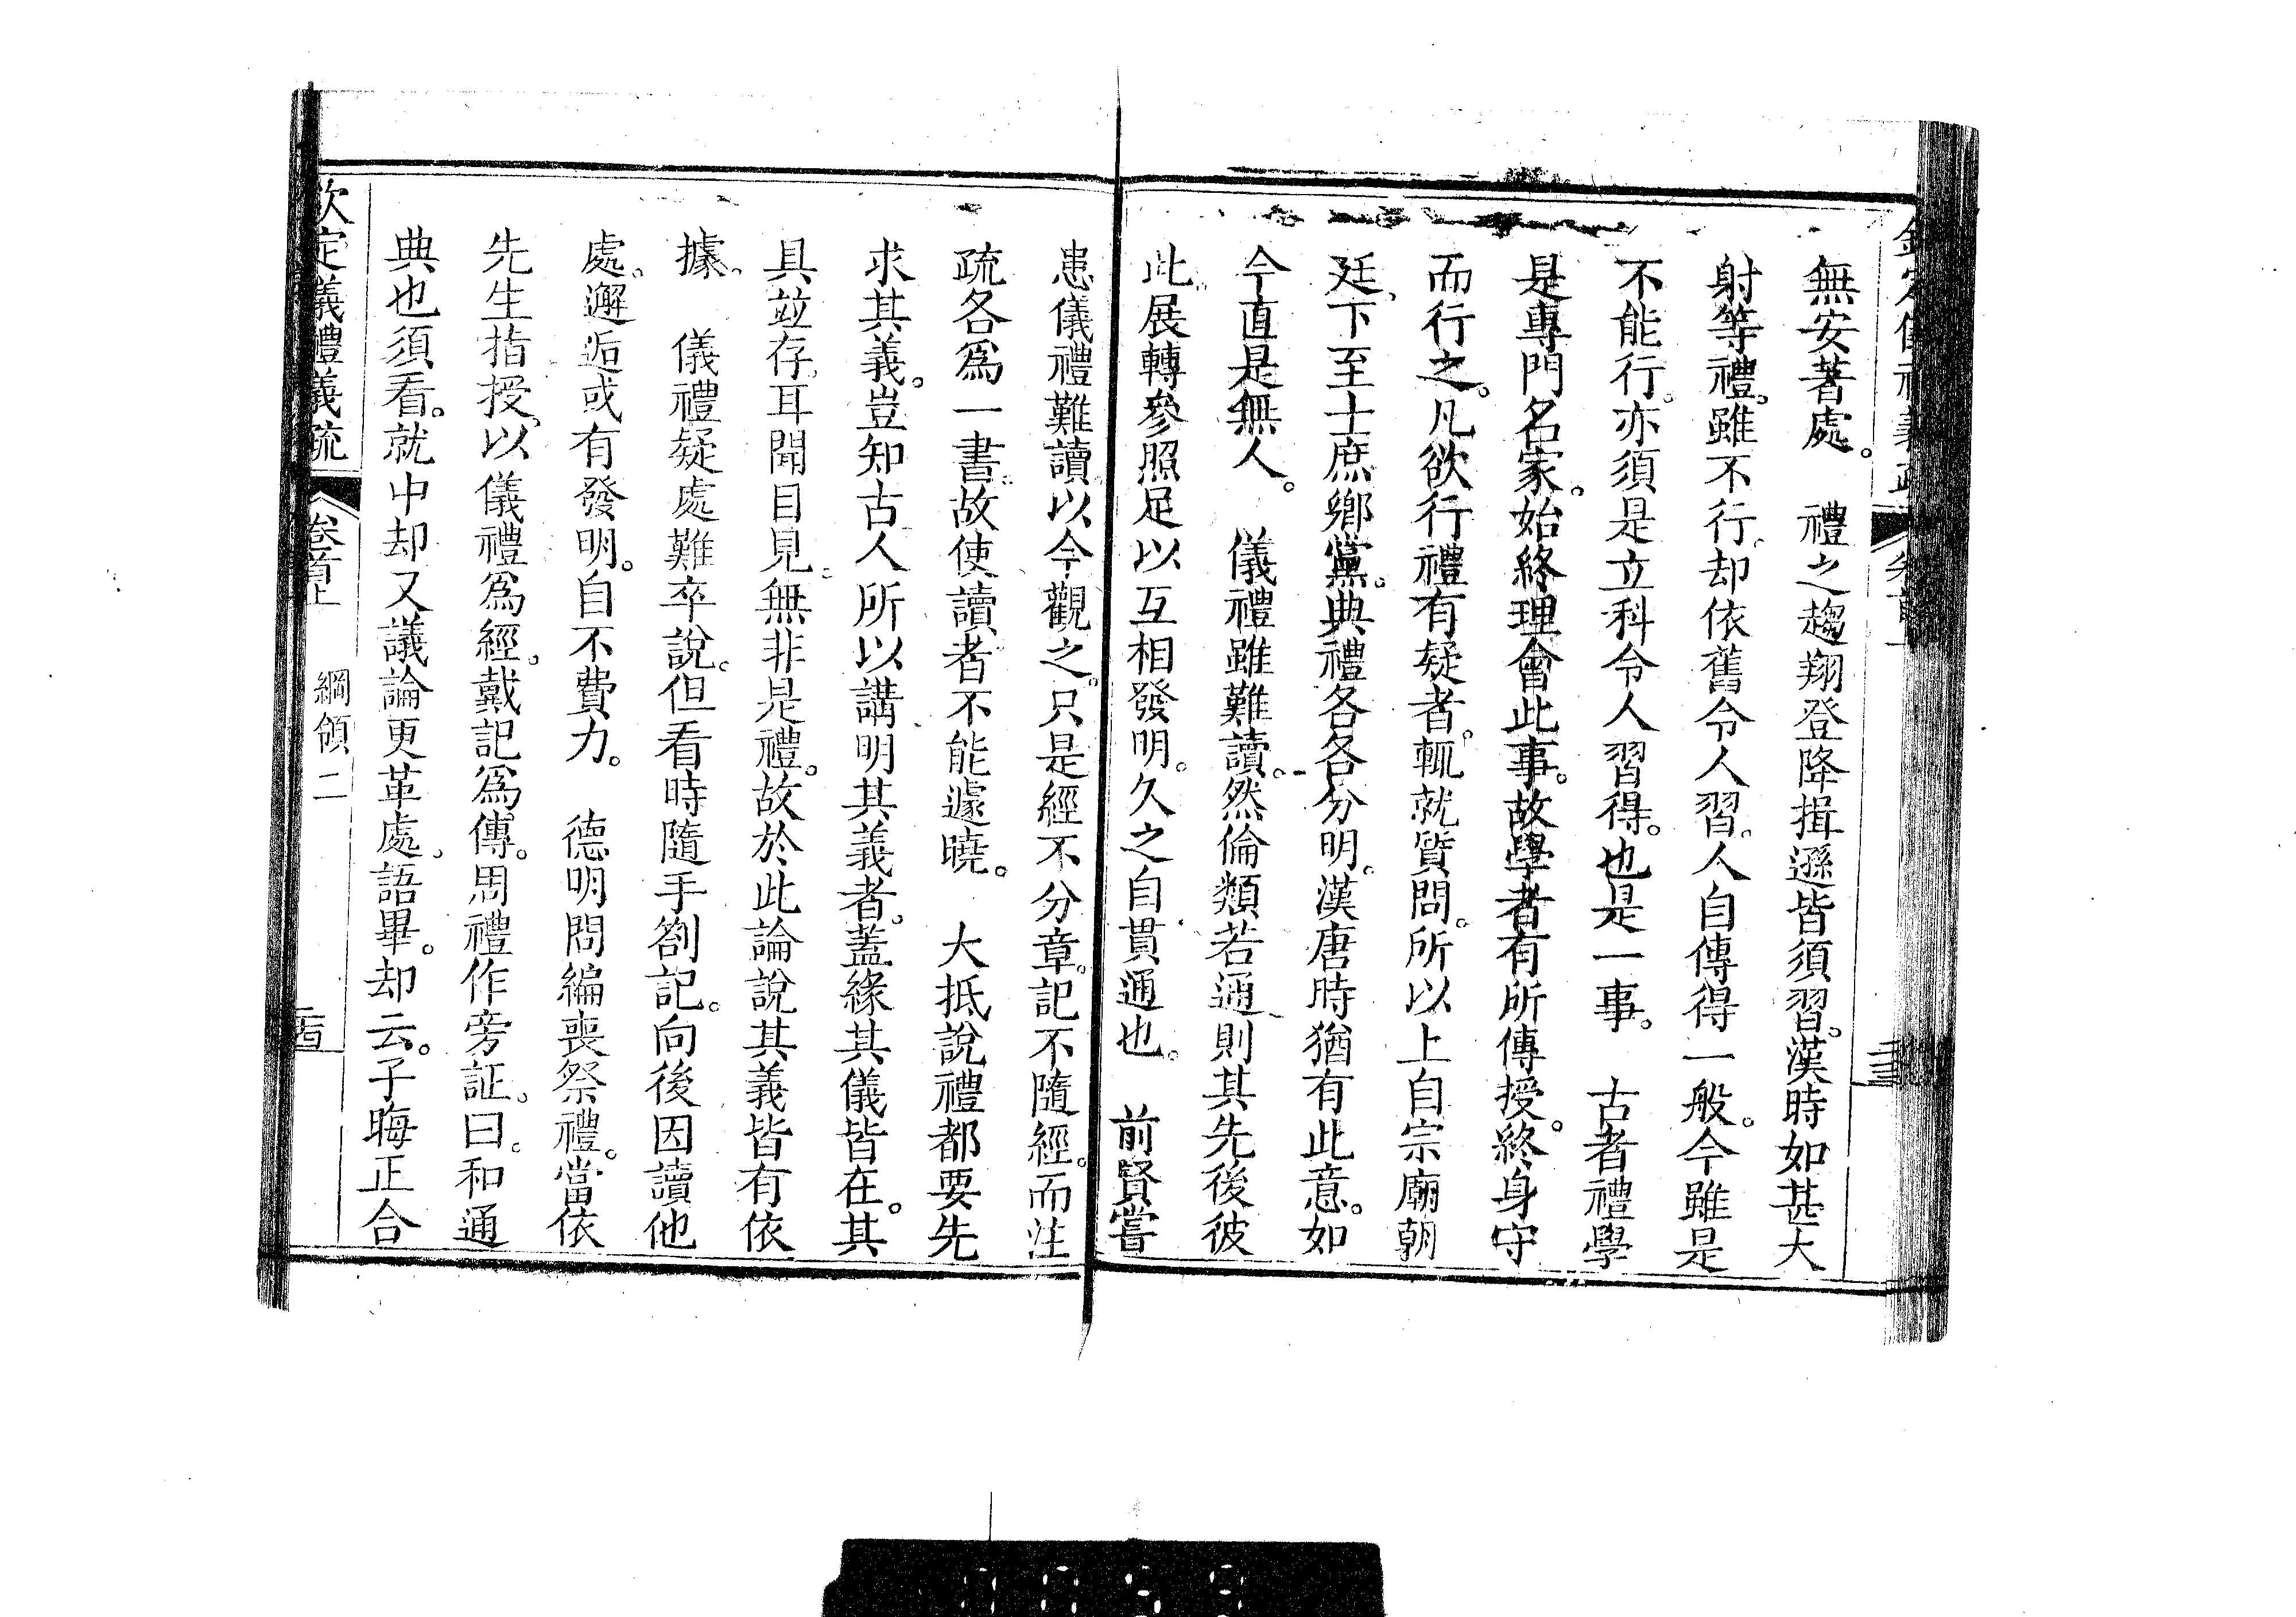 無安著處。　禮之趨翔登降揖遜皆須習。漢時如甚大
射等禮。雖不行。却依舊令人習。人自傳得一般。今雖是
不能行。亦須是立科令人習得。也是一事。　古者禮學
是專門名家。始終理會此事。故學者有所傳授。終身守
而行之。凡欲行禮有疑者。輒就質問。所以上自宗廟朝
廷、下至士庶鄉黨。典禮各各分明。漢唐時猶有此意。如
今直是無人。　儀禮雖難讀。然倫類若通、則其先後彼
此。展轉參照足以互相發明。久之自貫通也。　前賢嘗
患儀禮難讀。以今觀之。只是經不分章。記不隨經。而注
疏各爲一書。故使讀者不能遽曉。　大抵說禮都要先
求其義。豈知古人所以講明其義者。蓋緣其儀皆在。其
具並存。耳聞目見。無非是禮。故於此論說其義皆有依
據。　儀禮疑處難卒說。但看時隨手劄記。向後因讀他
處。邂逅或有發明。自不費力。　德明問編喪祭禮。當依
先生指授、以儀禮爲經。戴記爲傳。周禮作旁証。曰。和通
典也須看。就中却又議論更革處。語畢。却云。子晦正合
欽定儀禮義疏　卷首上　綱領二